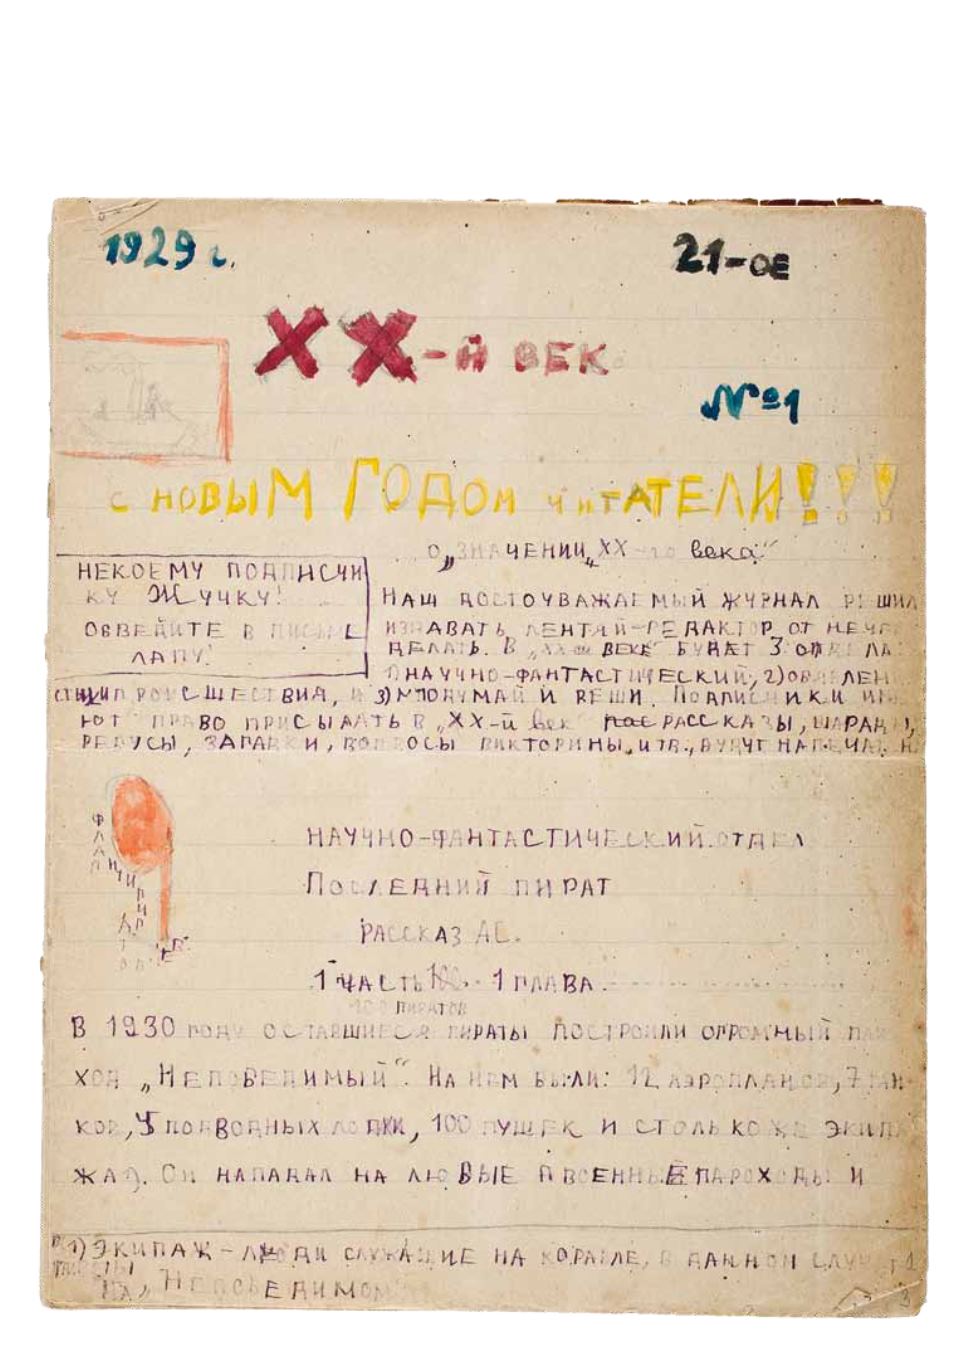 1929 г.
21-ое
ХХ-й ВЕК
№1
С НОВЫМ ГОДОМ ЧИТАТЕЛИ!!!
О „ЗНАЧЕНИИ „ХХ-го века“
НЕКОЕМУ ПОДПИСЧИ
КУ ЖУЧКУ!
ОБВЕДИТЕ В ПИСЬМЕ
ЛАПУ!
НАШ ДОСТОУВАЖАЕМЫЙ ЖУРНАЛ РЕШИЛ
ИЗДАВАТЬ ЛЕНТЯЙ-РЕДАКТОР ОТ НЕЧЕ
ДЕЛАТЬ. В „ХХ-ом ВЕКЕ“ БУДЕТ 3
1) НАУЧНО-ФАНТАСТИЧЕСКИЙ, 2)
ПРОИСШЕСТВИЯ, И 3) ПОДУМАЙ И РЕШИ. ПОДПИСЧИКИ ИМ
ЮТ ПРАВО ПРИСЫЛАТЬ В „ХХ-й век“ РАССКАЗЫ, ШАРАДЫ,
РЕБУСЫ, ЗАГАДКИ, ВОПРОСЫ ВИКТОРИНЫ, И ТП., БУДУТ
НАУЧНО-ФАНТАСТИЧЕСКИЙ ОТДЕЛ
ПОСЛЕДНИЙ ПИРАТ
РАССКАЗ АС.
1 ЧАСТЬ 1 ГЛАВА.
100 ПИРАТОВ
В 1930 ГОДУ ОСТАВШИЕСЯ ПИРАТЫ ПОСТРОИЛИ ОГРОМНЫЙ ПАРО
ХОД „НЕПОБЕДИМЫЙ“. НА НЁМ БЫЛИ: 12 АЭРОПЛАНОВ, 7 ТАН
КОВ, ПОДВОДНЫХ ЛОДКИ, 100 ПУШЕК И СТОЛЬКО ЖЕ ЭКИПА
ЖА 1). ОН НАПАДАЛ НА ЛЮБЫЕ ВОЕННЫЕ ПАРОХОДЫ И
1) ЭКИПАЖ – ЛЮДИ СЛУЖАЩИЕ НА КОРАБЛЕ, В ДАННОМ СЛУЧ
НА „НЕПОБЕДИМОМ
3